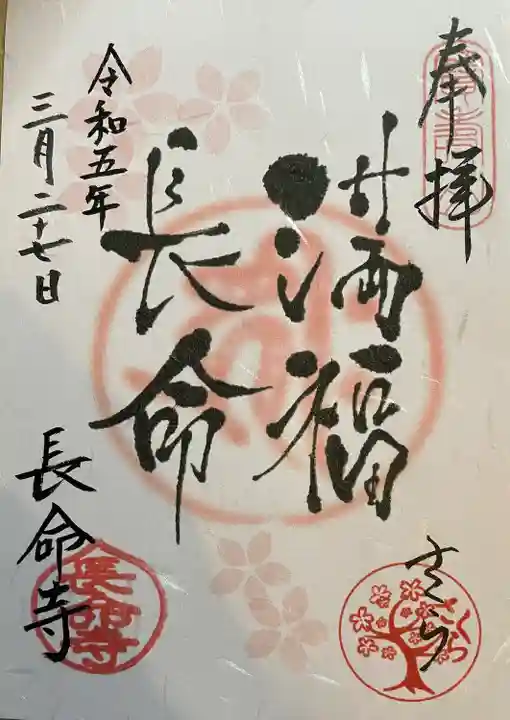 奉拝
満福
長命
令和五年
三月二十七日
長命寺
さくら
長命寺